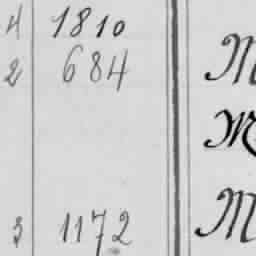 4 1810 M
2 684
M
3 1172 M